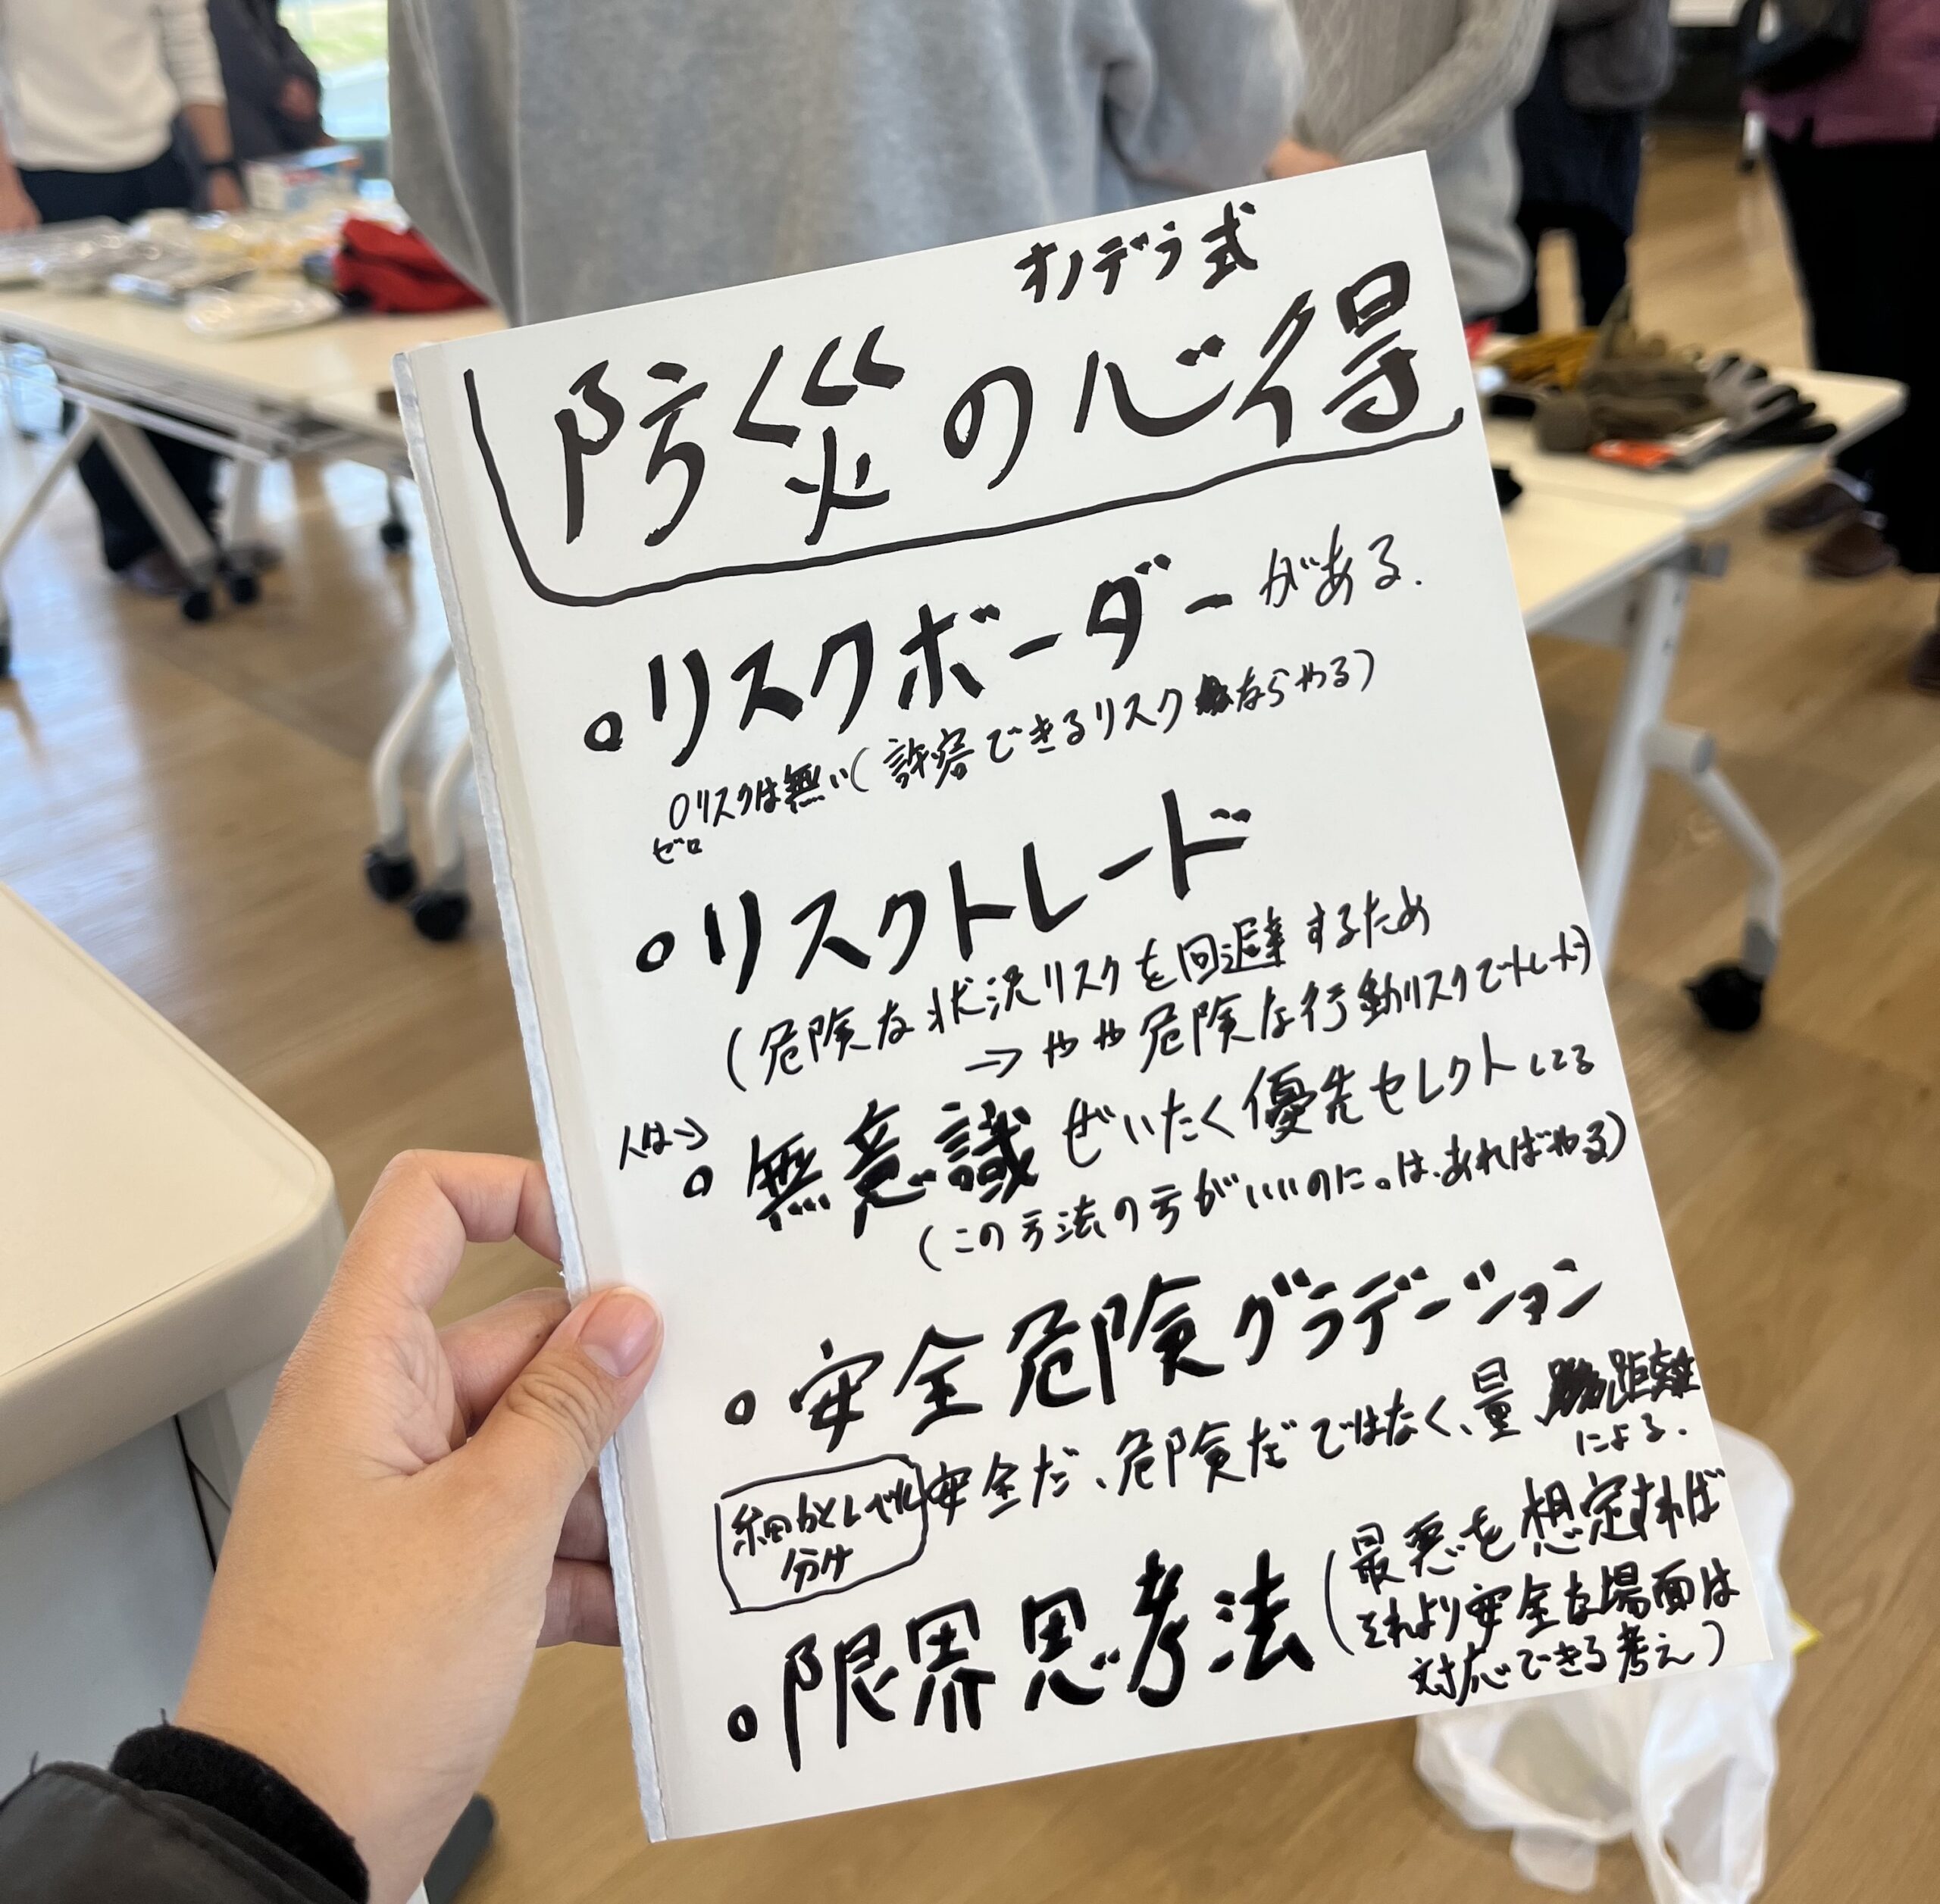 オノデラ式
防災の心得
○リスクボーダーがある.
0リスクは無い(許容できるリスクならやる)
ゼロ
○リスクトレード
(危険な状況リスクを回避するため
→やや危険な行動リスクでトレード)
人は→
○無意識ぜいたく優先セレクトしてる
(この方法の方がいいのに。は、あればやる)
○安全危険グラデーション
安全だ、危険だではなく、量、距離
による.
細かくレベル
分け
○限界思考法(最悪を想定すれば
それより安全な場面は
対応できる考え)